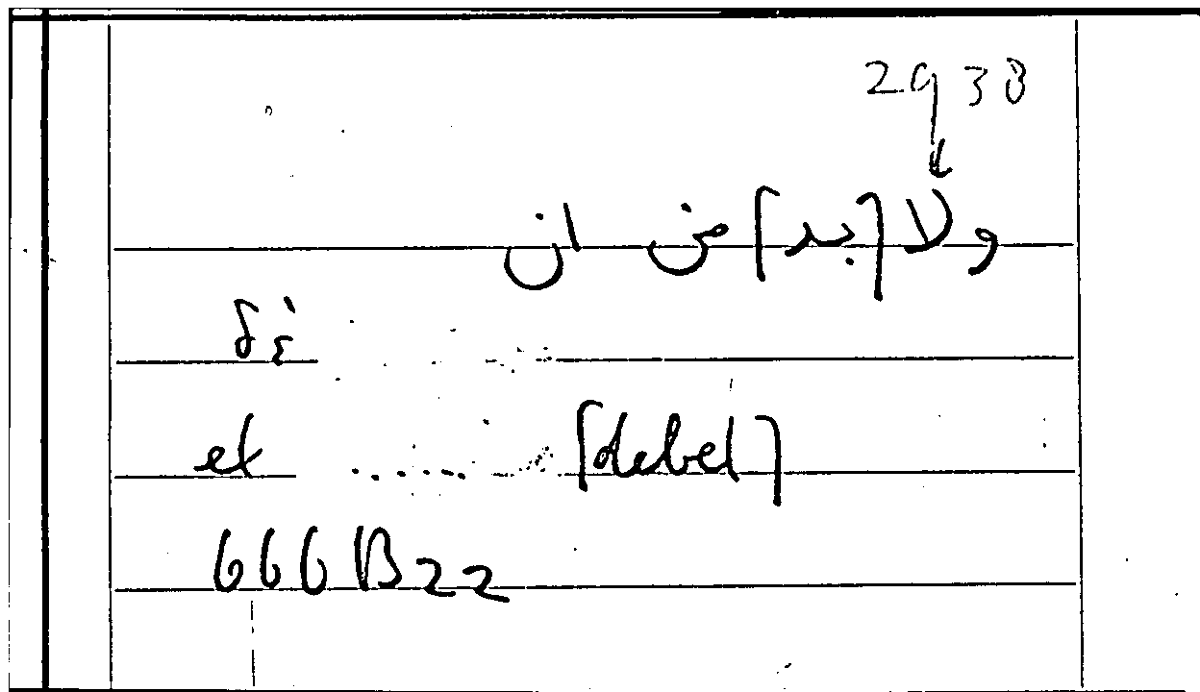 2938
ولا [بد] من ان
δέ
et ..... [debet]
666B22